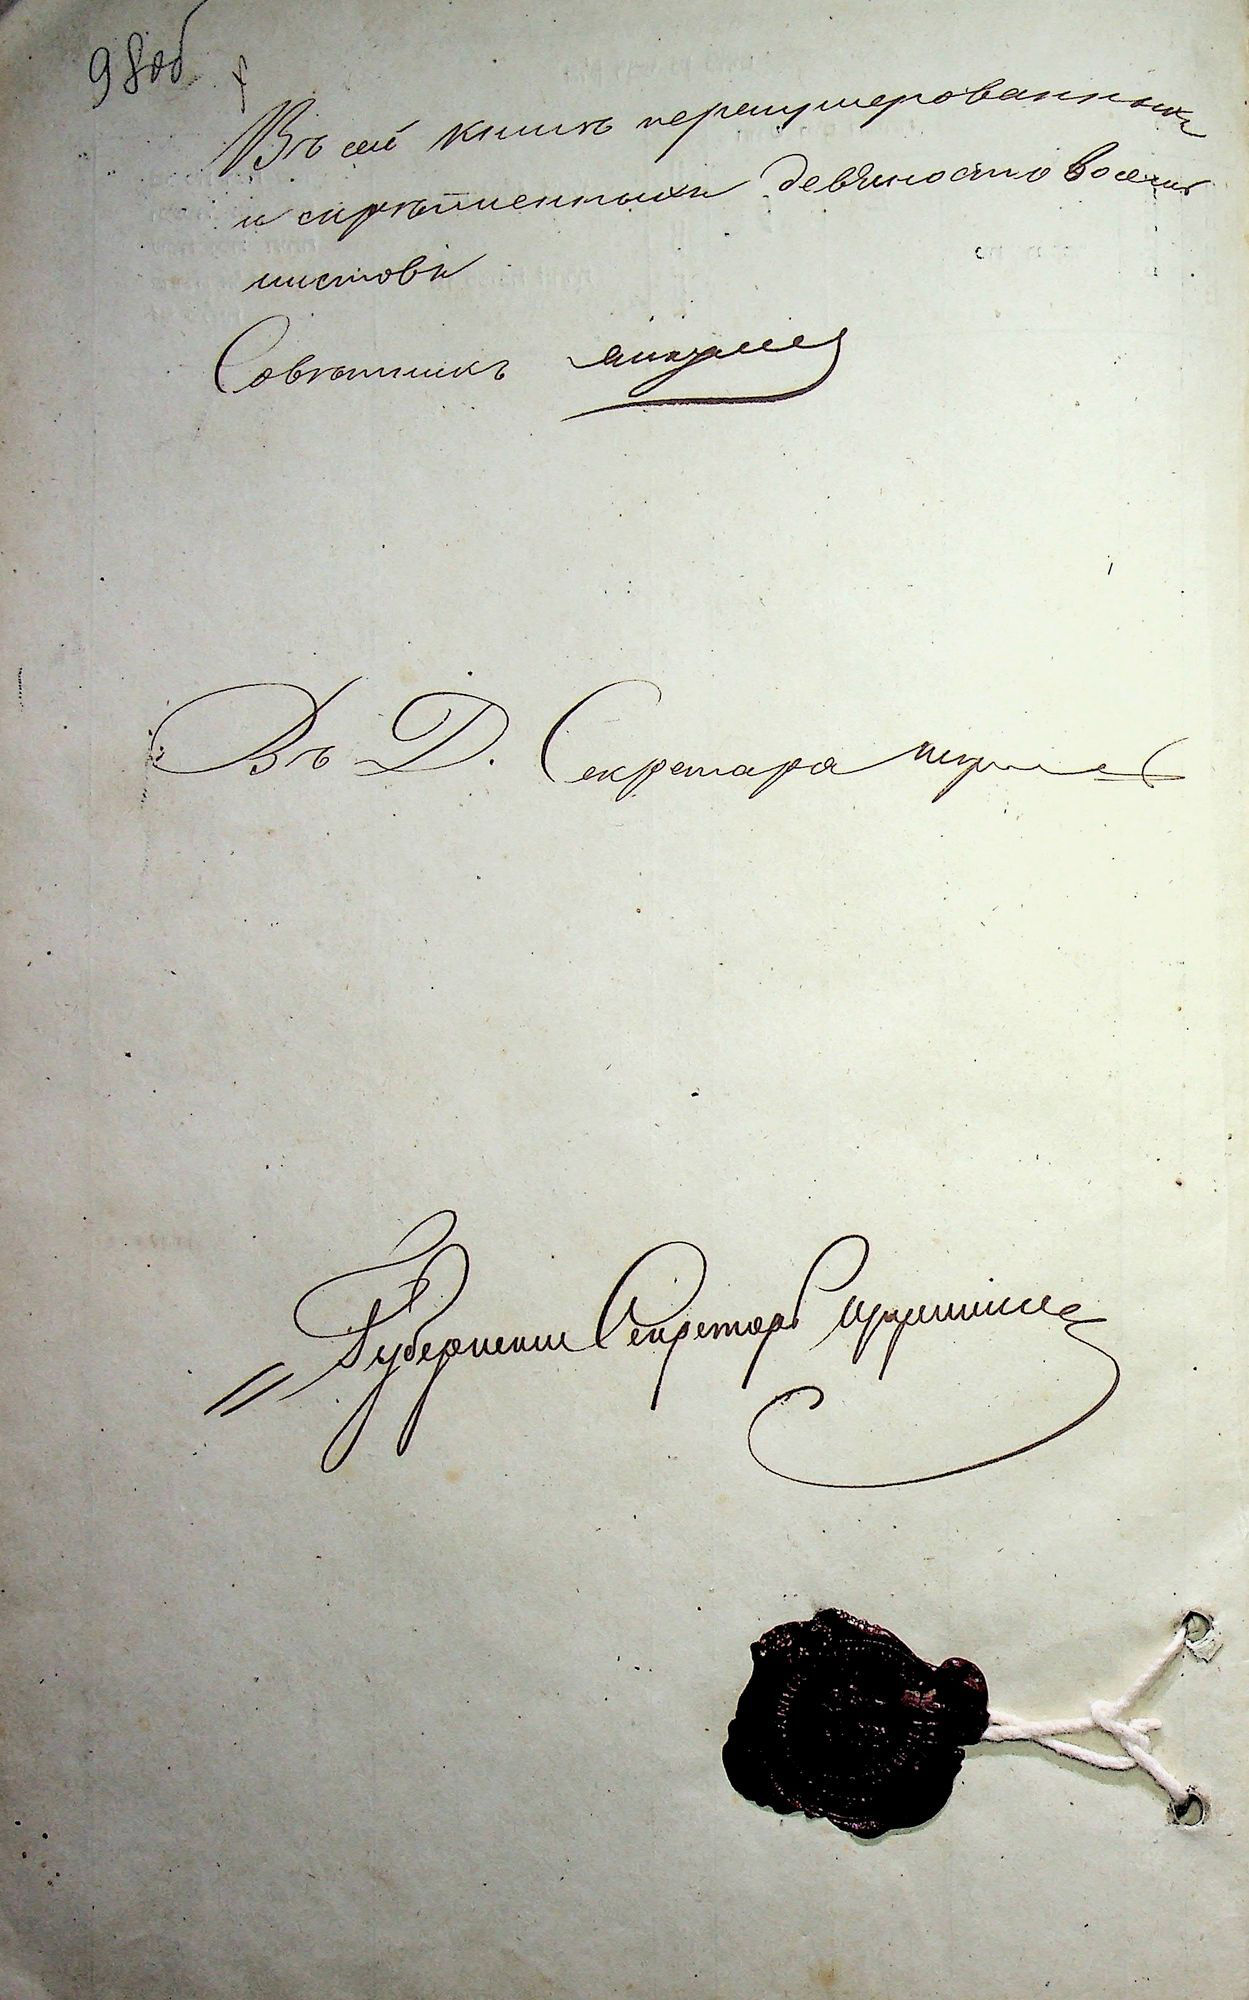 98об
Въ сей книгѣ перенумерованныхъ
и скрѣпленныхъ девяносто восемь
листовъ
Совѣтникъ
Въ Д. Секретаря
Губернскій Секретарь